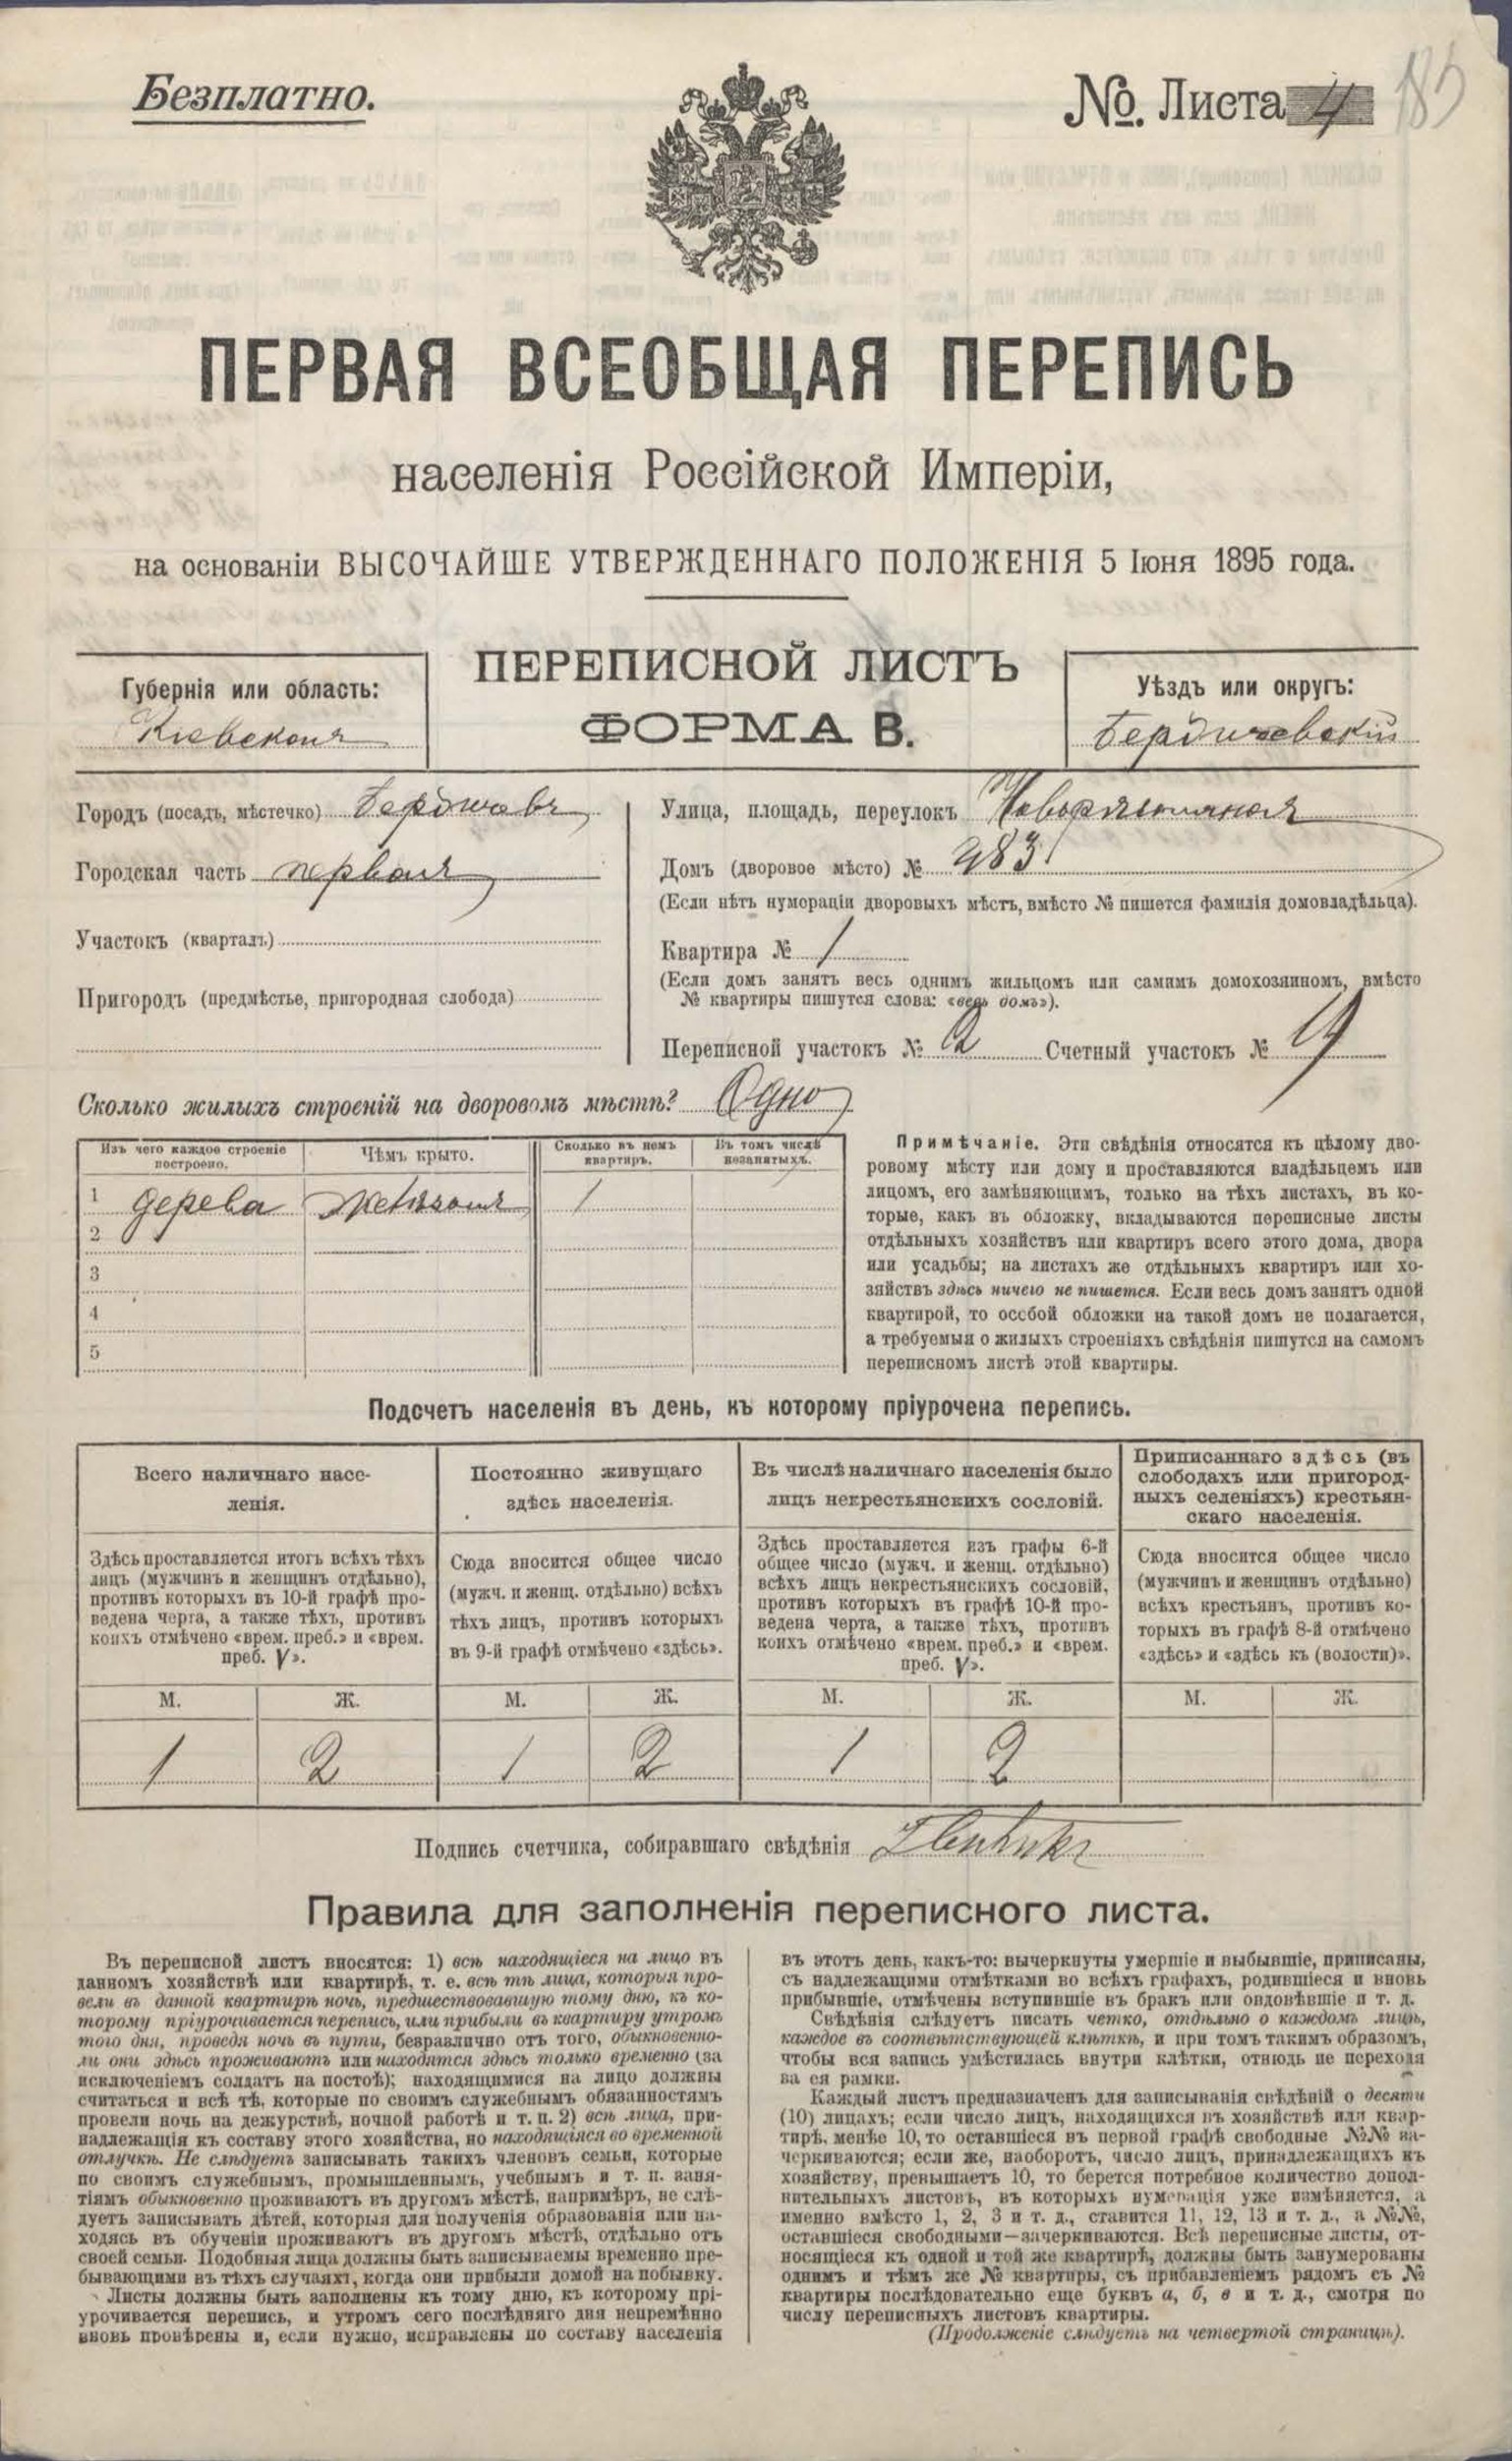 Безплатно.
№. Листа 4
185
ПЕРВАЯ ВСЕОБЩАЯ ПЕРЕПИСЬ
населенія Россійской Имперіи,
на основаніи ВЫСОЧАЙШЕ УТВЕРЖДЕННАГО ПОЛОЖЕНІЯ 5 Іюня 1895 года.
ПЕРЕПИСНОЙ ЛИСТЪ
ФОРМА В.
Губернія или область:
Кіевская
Уѣздъ или округъ:
Бердичевскій
Городъ (посадъ, мѣстечко) Бердичевъ
Городская часть первая
Участокъ (кварталъ)
Пригородъ (предмѣстье, пригородная слобода)
Улица, площадь, переулокъ
Домъ (дворовое мѣсто) № 283
(Если нѣтъ нумераціи дворовыхъ мѣстъ, вмѣсто № пишется фамилія домовладѣльца).
Квартира № 1
(Если домъ занятъ весь однимъ жильцомъ или самимъ домохозяиномъ, вмѣсто
№ квартиры пишутся слова: «весь домъ»).
Переписной участокъ № 2 Счетный участокъ №
Сколько жилыхъ строеній на дворовомъ мѣстѣ? Одно
Изъ чего каждое строеніе построено.
Чѣмъ крыто.
Сколько въ немъ квартиръ.
Въ томъ числѣ незанятыхъ.
1 дерева 1
2
3
4
5
Примѣчаніе. Эти свѣдѣнія относятся къ цѣлому дво-
ровому мѣсту или дому и проставляются владѣльцемъ или
лицомъ, его замѣняющимъ, только на тѣхъ листахъ, въ ко-
торые, какъ въ обложку, вкладываются переписные листы
отдѣльныхъ хозяйствъ или квартиръ всего этого дома, двора
или усадьбы; на листахъ же отдѣльныхъ квартиръ или хо-
зяйствъ здѣсь ничего не пишется. Если весь домъ занятъ одной
квартирой, то особой обложки на такой домъ не полагается,
а требуемыя о жилыхъ строеніяхъ свѣдѣнія пишутся на самомъ
переписномъ листѣ этой квартиры.
Подсчетъ населенія въ день, къ которому пріурочена перепись.
Всего наличнаго насе-
ленія.
Здѣсь проставляется итогъ всѣхъ тѣхъ
лицъ (мужчинъ и женщинъ отдѣльно),
противъ которыхъ въ 10-й графѣ про-
ведена черта, а также тѣхъ, противъ
коихъ отмѣчено «врем. преб.» и «врем.
преб. V».
М. Ж.
1 2
Постоянно живущаго
здѣсь населенія.
Сюда вносится общее число
(мужч. и женщ. отдѣльно) всѣхъ
тѣхъ лицъ, противъ которыхъ
въ 9-й графѣ отмѣчено «здѣсь».
М. Ж.
1 2
Въ числѣ наличнаго населенія было
лицъ некрестьянскихъ сословій.
Здѣсь проставляется изъ графы 6-й
общее число (мужч. и женщ. отдѣльно)
всѣхъ лицъ некрестьянскихъ сословій,
противъ которыхъ въ графѣ 10-й про-
ведена черта, а также тѣхъ, противъ
коихъ отмѣчено «врем. преб.» и «врем.
преб. V».
М. Ж.
1 2
Приписаннаго здѣсь (въ
слободахъ или пригород-
ныхъ селеніяхъ) крестьян-
скаго населенія.
Сюда вносится общее число
(мужчинъ и женщинъ отдѣльно)
всѣхъ крестьянъ, противъ ко-
торыхъ въ графѣ 8-й отмѣчено
«здѣсь» и «здѣсь къ (волости)».
М. Ж.
Подпись счетчика, собиравшаго свѣдѣнія
Правила для заполненія переписного листа.
Въ переписной листъ вносятся: 1) всѣ находящіеся на лицо въ
данномъ хозяйствѣ или квартирѣ, т. е. всѣ тѣ лица, которыя про-
вели въ данной квартирѣ ночь, предшествовавшую тому дню, къ ко-
торому пріурочивается перепись, или прибыли въ квартиру утромъ
того дня, проведя ночь въ пути, безразлично отъ того, обыкновенно-
ли они здѣсь проживаютъ или находятся здѣсь только временно (за
исключеніемъ солдатъ на постоѣ); находящимися на лицо должны
считаться и всѣ тѣ, которые по своимъ служебнымъ обязанностямъ
провели ночь на дежурствѣ, ночной работѣ и т. п. 2) всѣ лица, при-
надлежащія къ составу этого хозяйства, но находящіяся во временной
отлучкѣ. Не слѣдуетъ записывать такихъ членовъ семьи, которые
по своимъ служебнымъ, промышленнымъ, учебнымъ и т. п. заня-
тіямъ обыкновенно проживаютъ въ другомъ мѣстѣ, напримѣръ, не слѣ-
дуетъ записывать дѣтей, которыя для полученія образованія или на-
ходясь въ обученіи проживаютъ въ другомъ мѣстѣ, отдѣльно отъ
своей семьи. Подобныя лица должны быть записываемы временно пре-
бывающими въ тѣхъ случаяхъ, когда они прибыли домой на побывку.
Листы должны быть заполнены къ тому дню, къ которому прі-
урочивается перепись, и утромъ сего послѣдняго дня непремѣнно
вновь провѣрены и, если нужно, исправлены по составу населенія
въ этотъ день, какъ-то: вычеркнуты умершіе и выбывшіе, приписаны,
съ надлежащими отмѣтками во всѣхъ графахъ, родившіеся и вновь
прибывшіе, отмѣчены вступившіе въ бракъ или овдовѣвшіе и т. д.
Свѣдѣнія слѣдуетъ писать четко, отдѣльно о каждомъ лицѣ,
каждое въ соотвѣтствующей клѣткѣ, и при томъ такимъ образомъ,
чтобы вся запись умѣстилась внутри клѣтки, отнюдь не переходя
за ея рамки.
Каждый листъ предназначенъ для записыванія свѣдѣній о десяти
(10) лицахъ; если число лицъ, находящихся въ хозяйствѣ или квар-
тирѣ, менѣе 10, то оставшіеся въ первой графѣ свободные №№ за-
черкиваются; если же, наоборотъ, число лицъ, принадлежащихъ къ
хозяйству, превышаетъ 10, то берется потребное количество допол-
нительныхъ листовъ, въ которыхъ нумерація уже измѣняется, а
именно вмѣсто 1, 2, 3 и т. д., ставится 11, 12, 13 и т. д., а №№,
оставшіеся свободными—зачеркиваются. Всѣ переписные листы, от-
носящіеся къ одной и той же квартирѣ, должны быть занумерованы
однимъ и тѣмъ же № квартиры, съ прибавленіемъ рядомъ съ №
квартиры послѣдовательно еще буквъ а, б, в и т. д., смотря по
числу переписныхъ листовъ квартиры.
(Продолженіе слѣдуетъ на четвертой страницѣ).